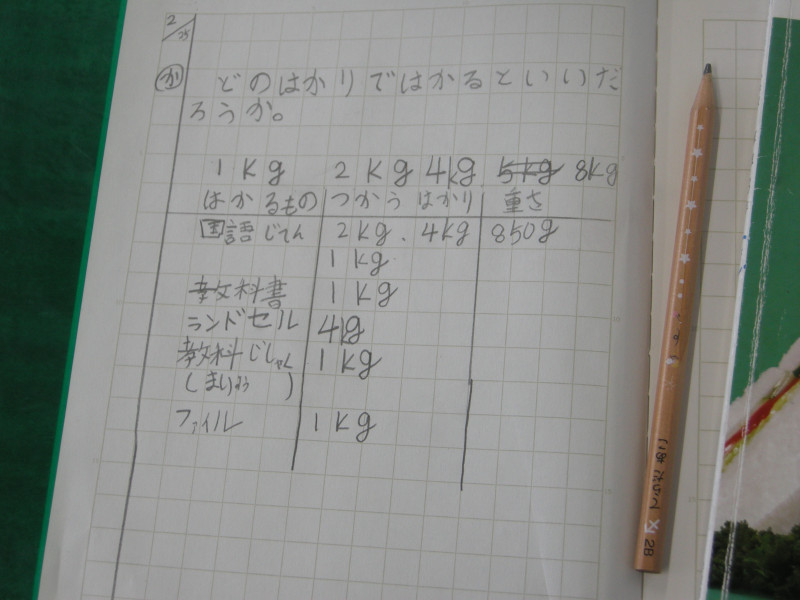 2/25
か どのはかりではかるといいだ
ろうか。
1kg 2kg 4kg 5kg 8kg
はかるもの つかう はかり 重さ
国語じてん 2kg. 4kg 850g
1kg
教科書 1kg
ランドセル 4kg
教科じしゃく 1kg
ファイル 1kg
2B